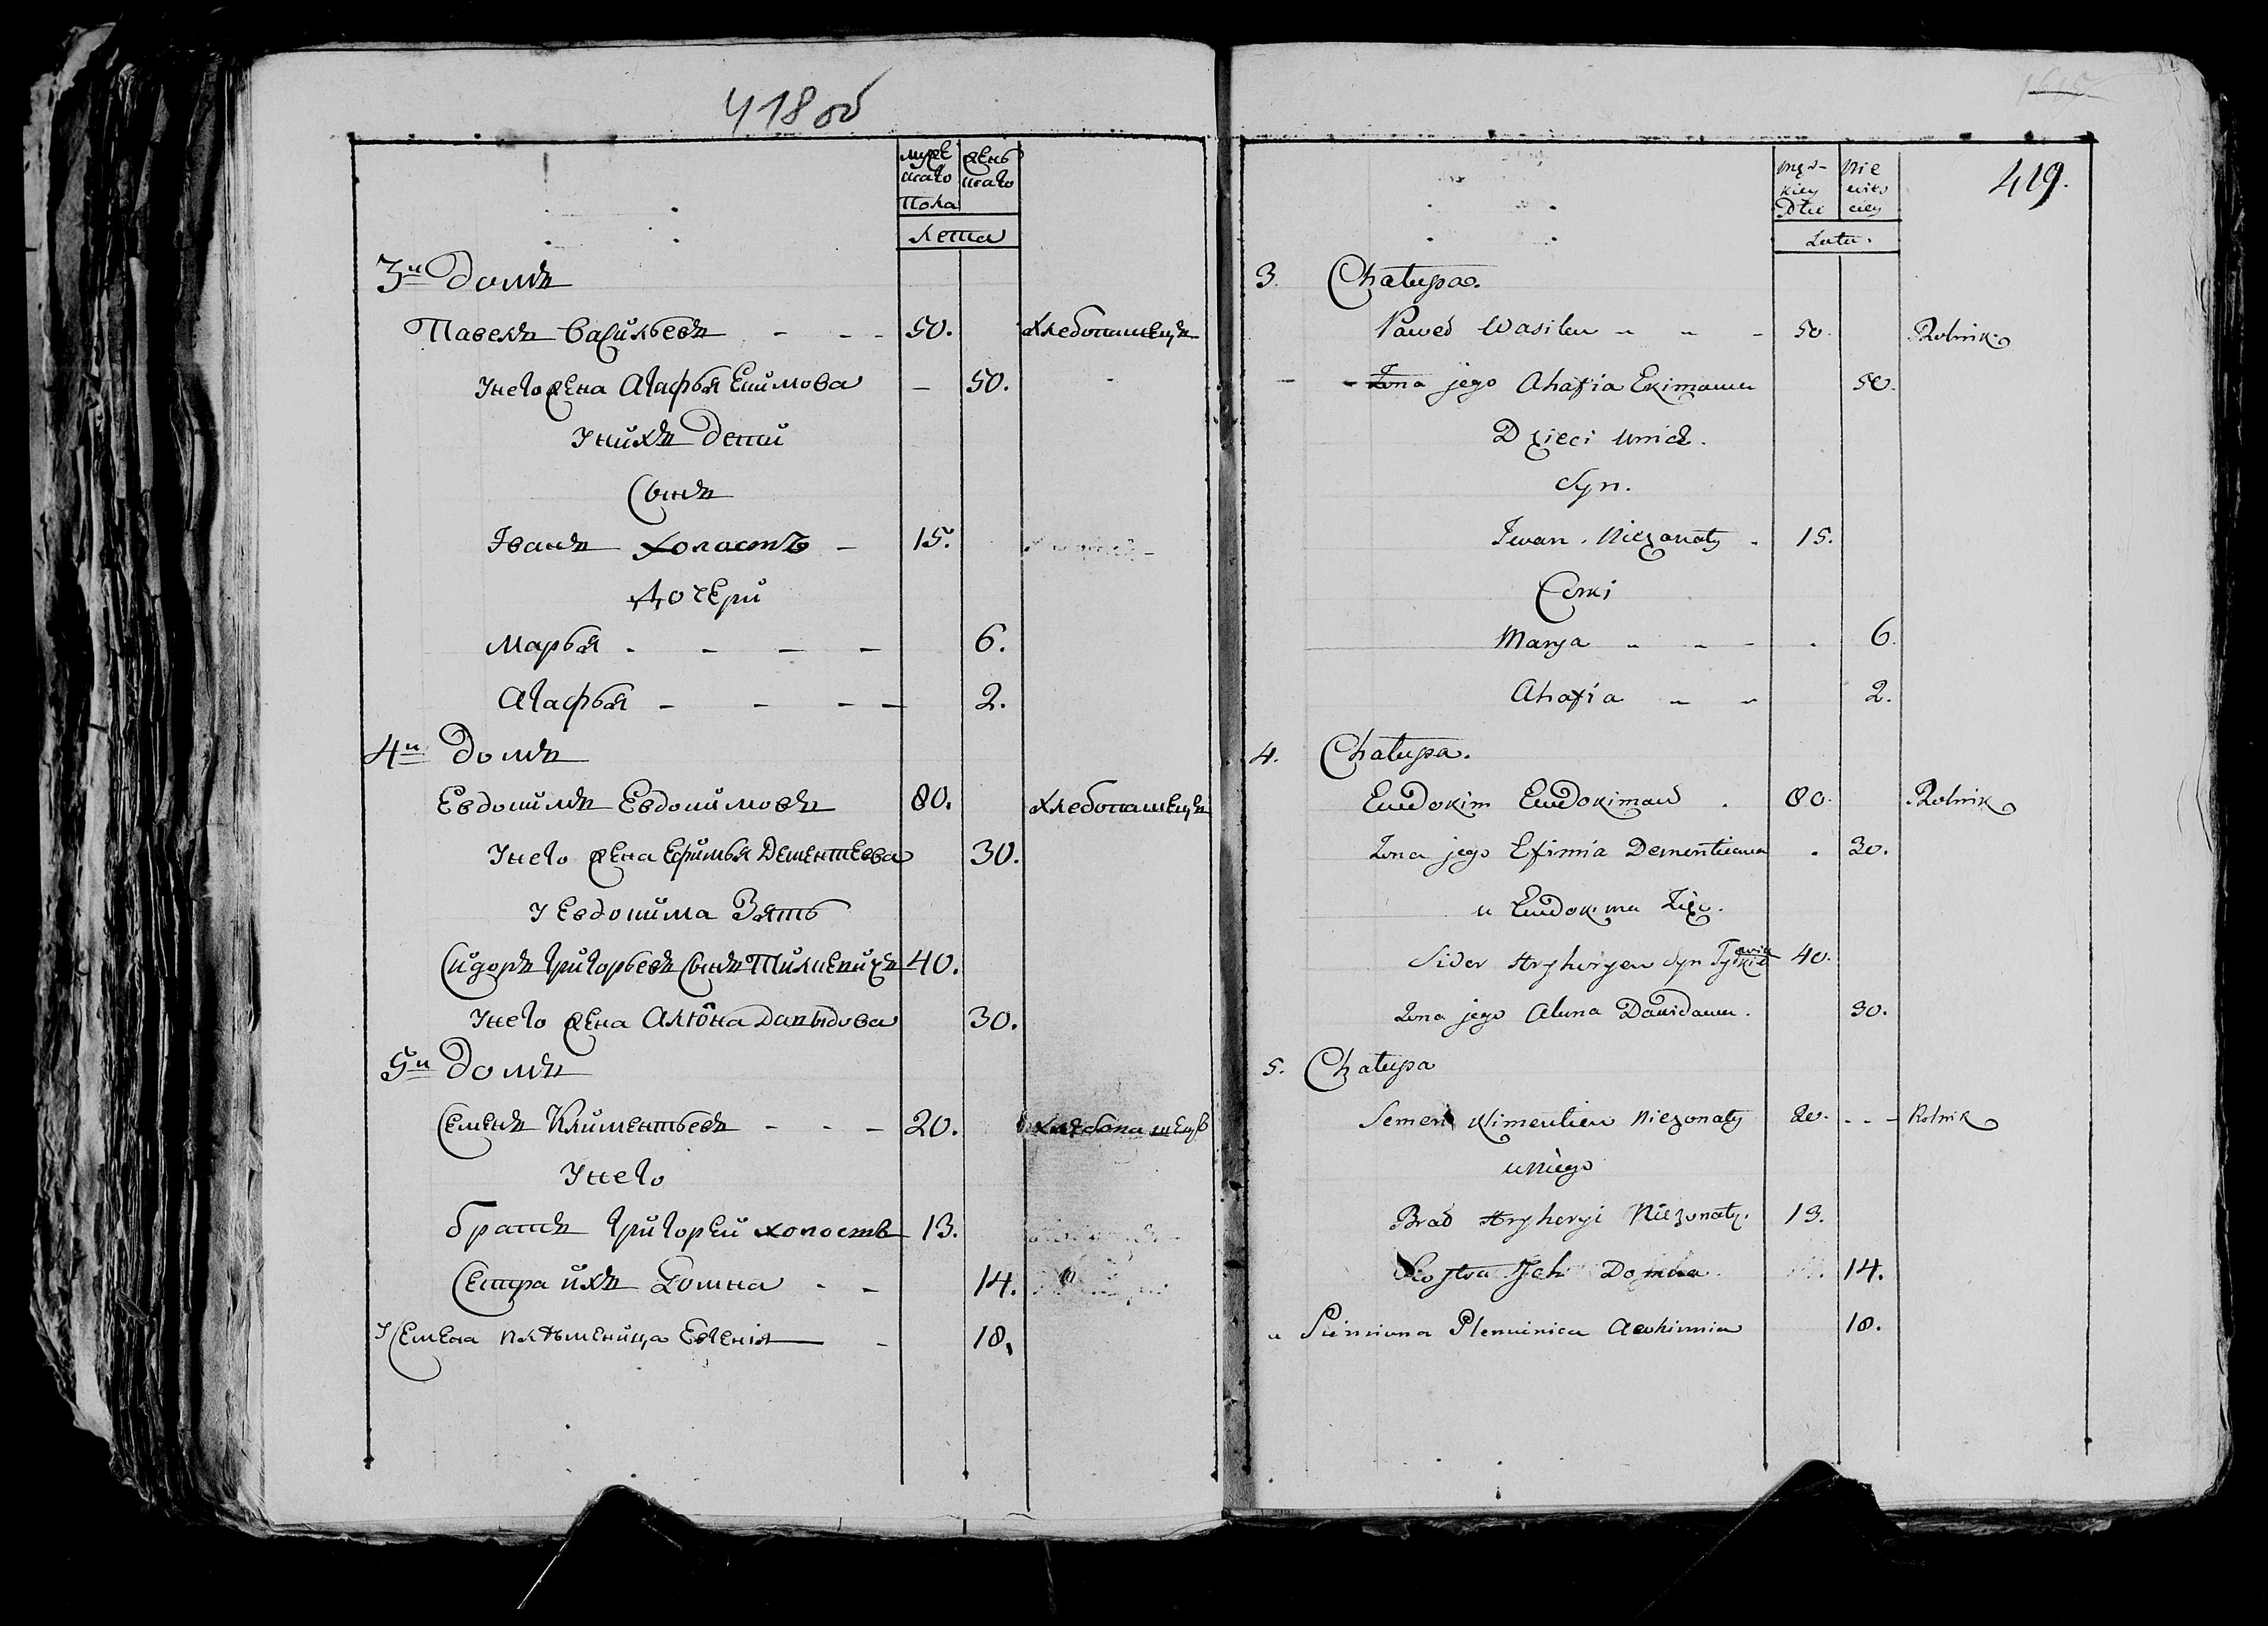 418 об
муже
скаго
пола
жень
скаго
лета
3й домъ
Павелъ Васильевъ - - - 50. хлебопашецъ
У него жена Агафья Екимова - 50.
У нихъ дети
Сынъ
Іванъ холостъ - 15.
Дочери
Марья - - - - 6.
Агафья - - - - 2.
4й домъ
Евдокимъ Евдокимовъ 80. хлебопашецъ
У него жена Ефимья Дементьева 30.
У Евдокима Зять
Сидоръ Григорьевъ Сынъ 40.
У него жена Алюна Давыдова 30.
5й домъ
Семенъ Климентьевъ - - - 20. хлебопашецъ
У него
братъ Григорей холостъ 13.
Сестра ихъ Домна - - 14.
У Семена племеница Евгенія - 18.
419.
męz-
kiey
Płci
Nie
wies
ciey
Lata.
3. Chałupa.
Paweł Wasilew " " - 50. Rolnik
Żona jego Ahafia Ekimowa 50.
Dzieci unich.
Syn.
Iwan. Niezonaty - 15.
Corki
Marya " " - . 6.
Ahafia " " 2.
4. Chałupa.
Ewdokim Ewdokimow . 80. Rolnik
Żona jego Efimia Dementiewa . 30.
u Ewdokima Zięć.
Sidor Hryhoryew Syn 40.
Żona jego Aluna Dawidowa. 30.
5. Chałupa
Semen Klimentiew Niezonaty 20. - - - Rolnik
uniego
Brat Hryhoryi Niezonaty. 13.
Siostra Ich Domna. 14.
u Siemiona Plemienica 18.